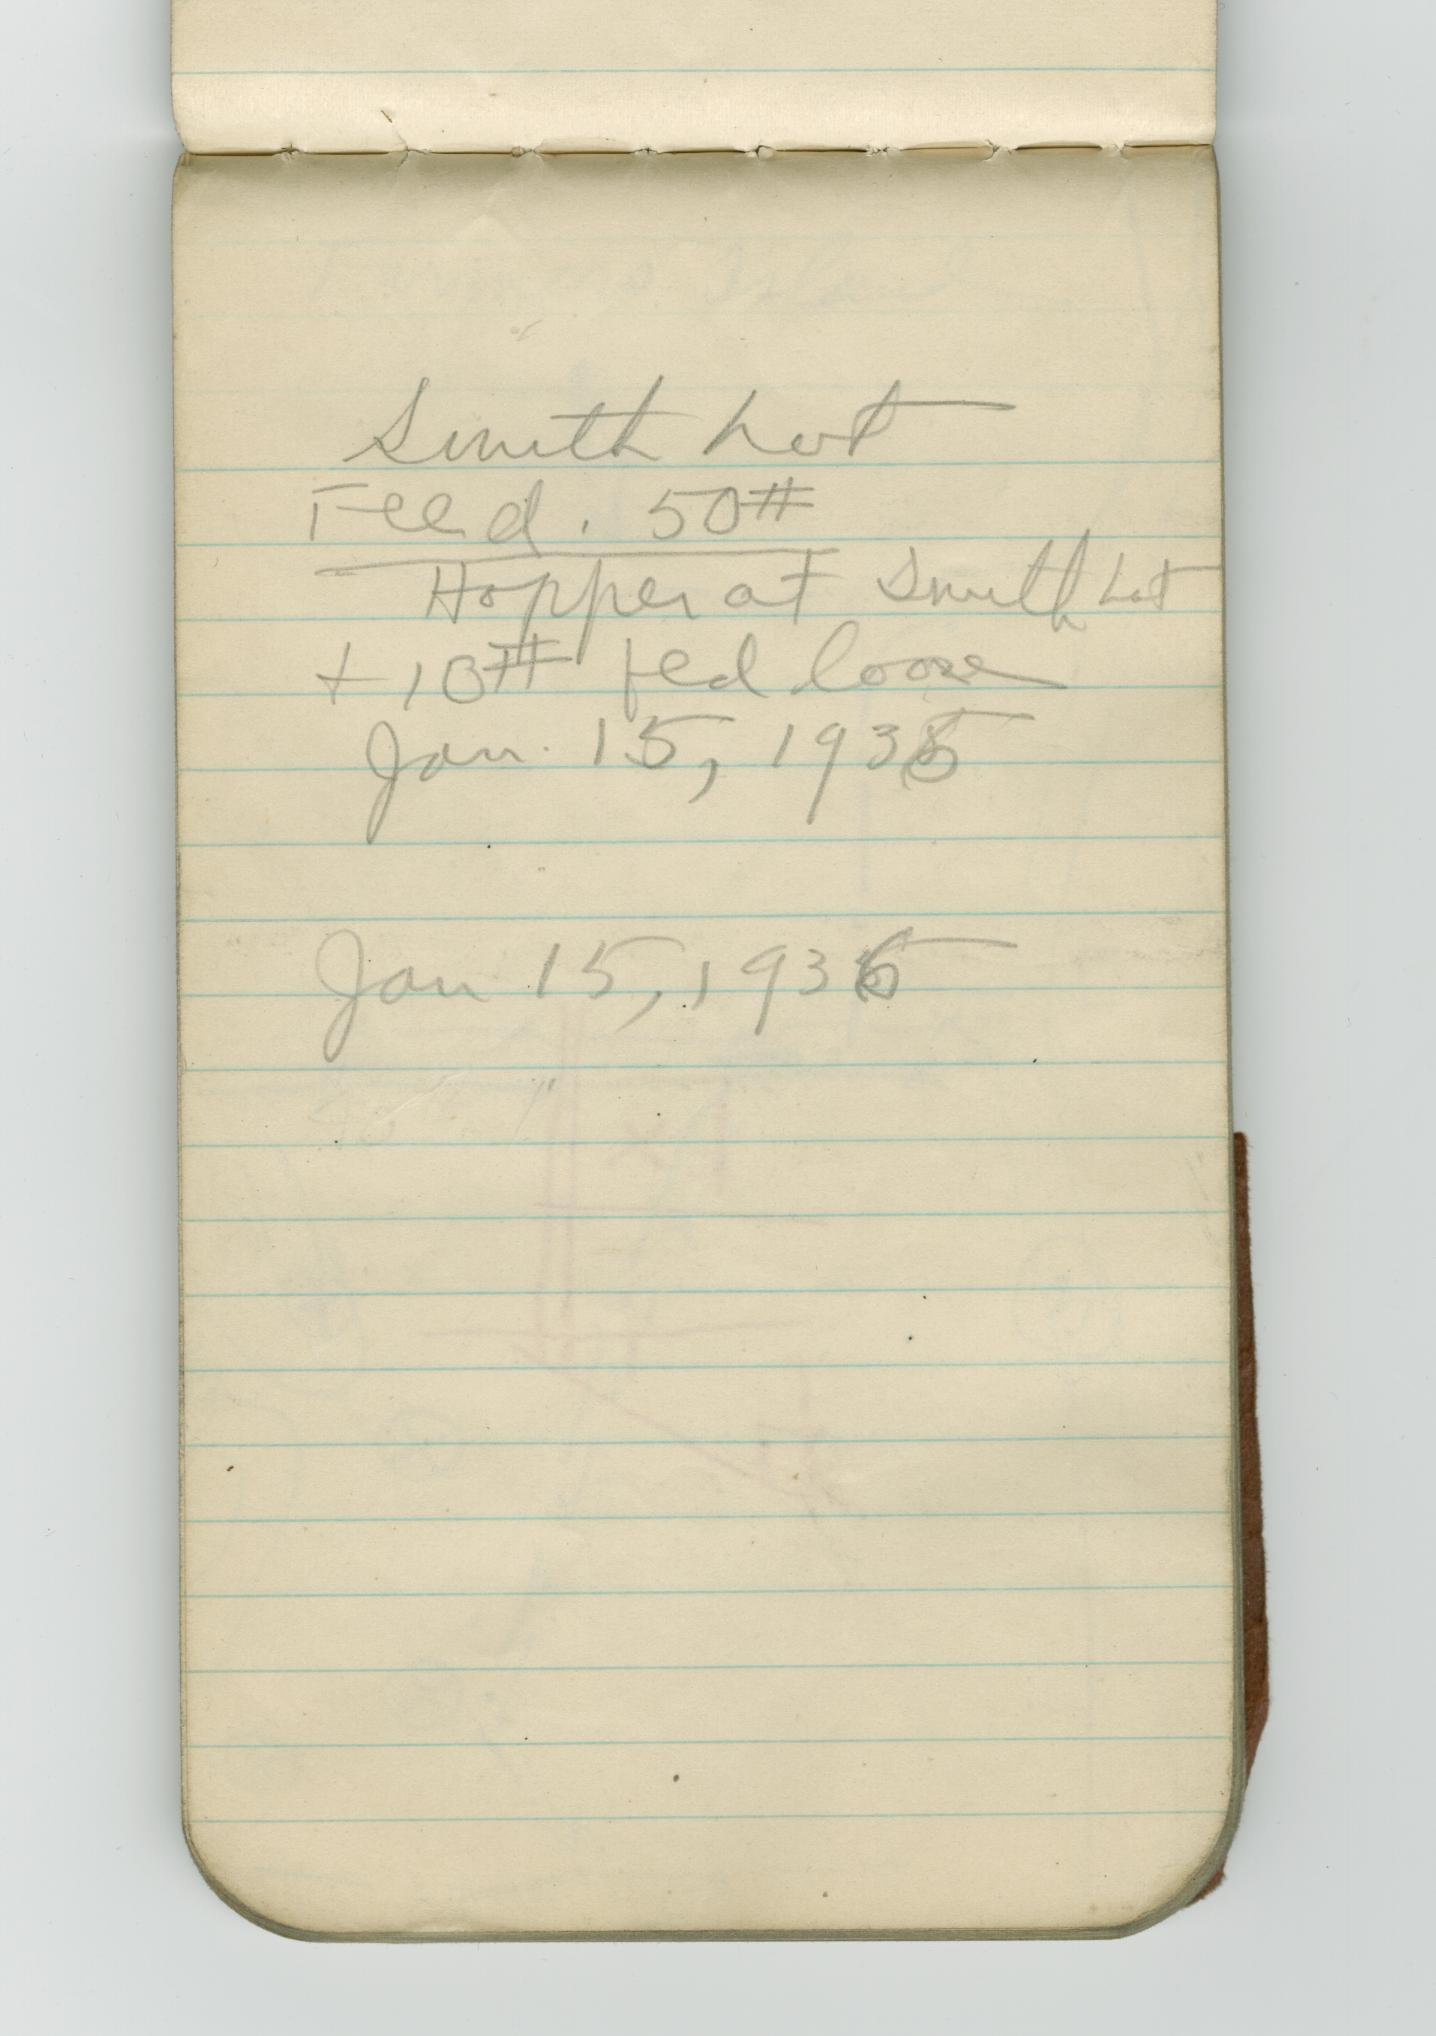 Smith Lot
Feed. 50#
Hopper at Smith Lot
+ 10# fed loose
Jan. 15, 1935
Jan 15, 1935